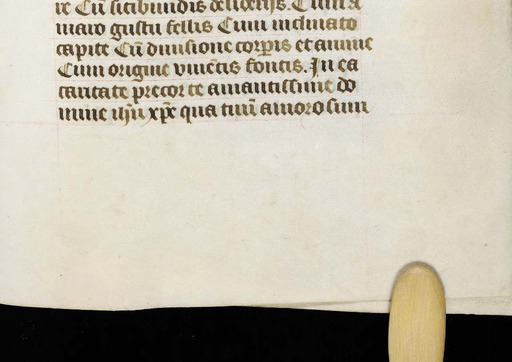 re Cū sitibundis desiderijs. Cum a
maro gustu fellis Cum inclinato
capite Cū diuisione corpis et anime
Cum origine viuētis fontis. In ea
caritate precor te amantissime do
mine iħu xp̄e qua tuū amorosum